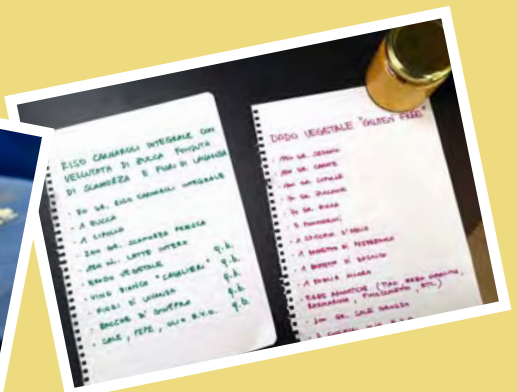 RISO CARNAROLI INTEGRALE CON
VELLUTATA DI ZUCCA FONDUTA
DI SCAMORZA E FIORI DI LAVANDA
· 80 GR. RISO CARNAROLI INTEGRALE
· 1 ZUCCA
· 1 CIPOLLA
· 200 GR. SCAMORZA FRESCA
· 150 ML. LATTE INTERO
· BRODO VEGETALE
· VINO BIANCO "CAVALIERI" q.b.
· FIORI DI LAVANDA q.b.
· BACCHE DI GINEPRO q.b.
· SALE, PEPE, OLIO E.V.O. q.b.
DADO VEGETALE "GLUTEN FREE"
GR. SEDANO
GR. CAROTE
GR. CIPOLLE
GR. ZUCCHINE
GR. ZUCCA
POMODORI
· 1 SPICCHIO D'AGLIO
· 1 MAZZETTO DI PREZZEMOLO
· 1 MAZZETTO DI BASILICO
· 1 FOGLIA ALLORO
· ERBE AROMATICHE (TIMO,
ROSMARINO, FINOCCHIETTO, ETC.)
GR. SALE GROSSO